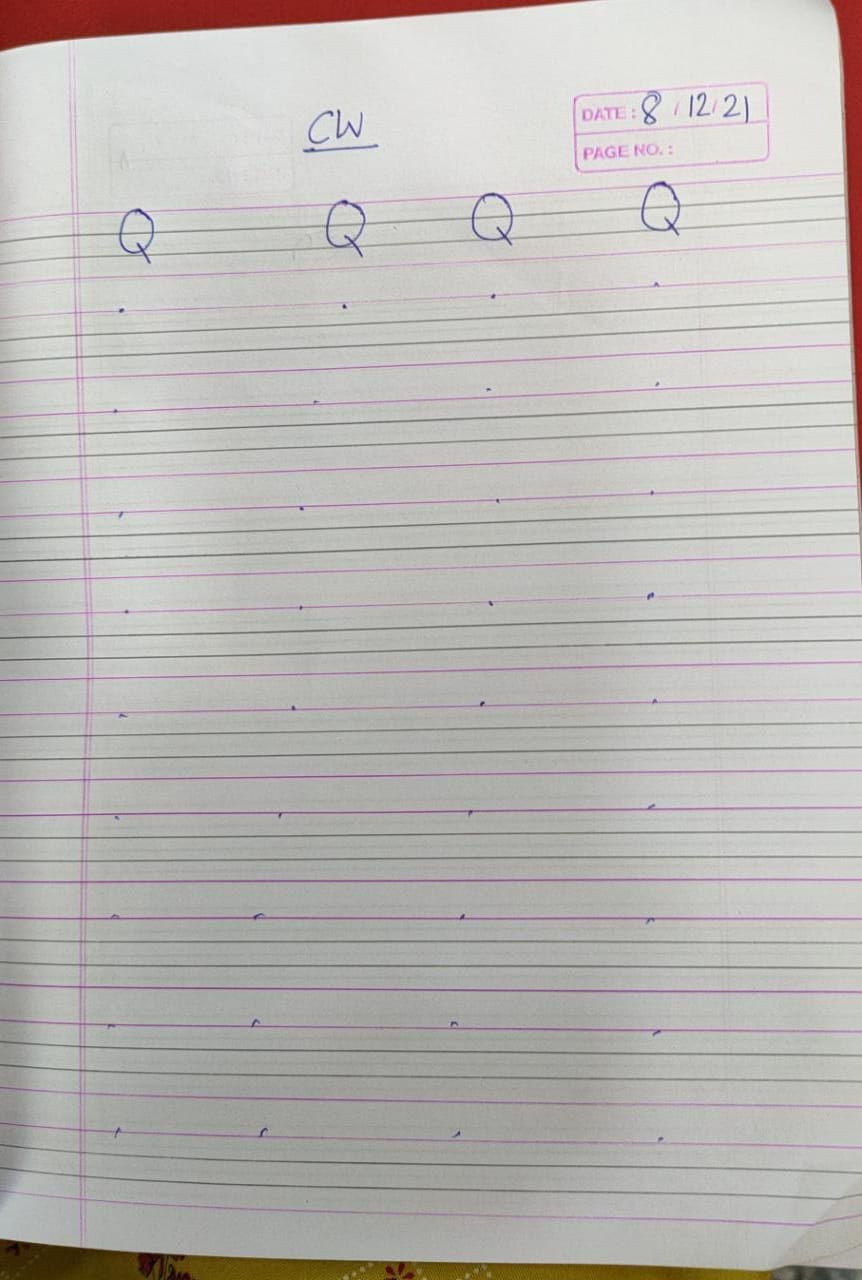 CW
DATE : 8 / 12 / 21
PAGE NO. :
Q Q Q Q